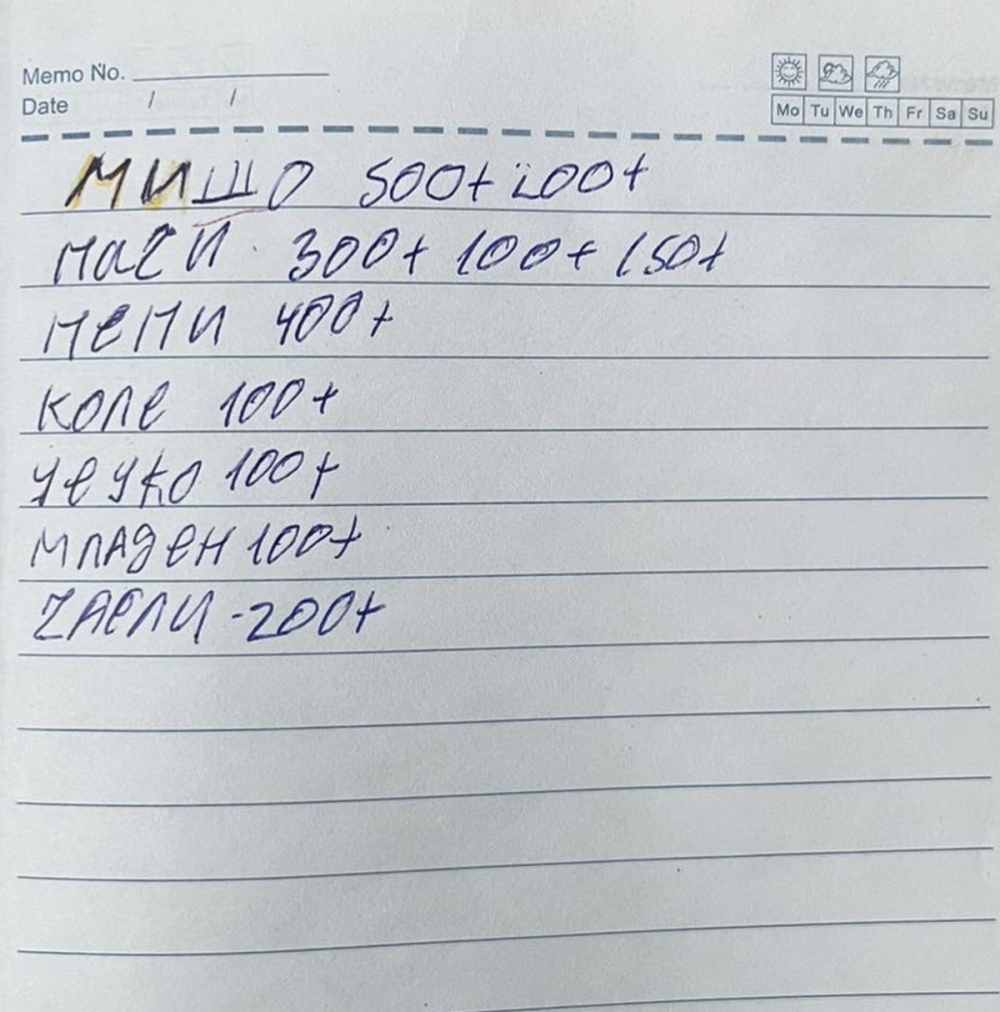 Memo No.
Date / /
Mo Tu We Th Fr Sa Su
МИШО 500+200+
300+ 100+ 150+
МЕМИ 400+
КОЛЕ 100+
100+
МЛАДЕН 100+
-200+